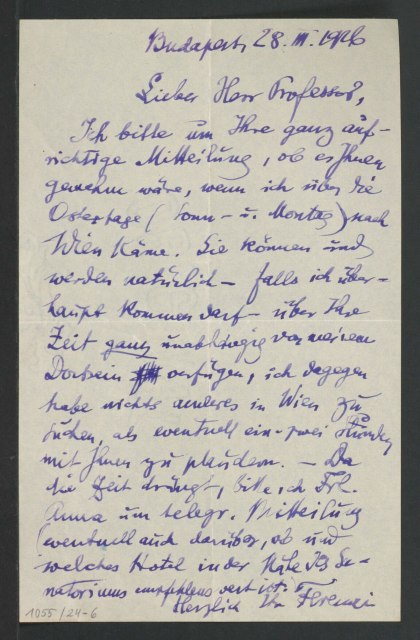 Budapest, 28. III. 1926
Lieber Herr Professor,
Ich bitte um Ihre ganz auf-
richtige Mitteilung, ob es Ihnen
genehm wäre, wenn ich über die
Ostertage (Sonn- u. Montag) nach
Wien käme. Sie können und
werden natürlich – falls ich über-
haupt kommen darf – über Ihre
Zeit ganz unabhängig von meinem
Dortsein verfügen, ich dagegen
habe nichts anderes in Wien zu
suchen, als eventuell ein-zwei Stunden
mit Ihnen zu plaudern. – Da
die Zeit drängt, bitte ich Frl.
Anna um telegr. Mitteilung
(eventuell auch darüber, ob und
welches Hotel in der Nähe des Sa-
natoriums empfehlenswert ist).
Herzlich Ihr Ferenczi
1055/24-6